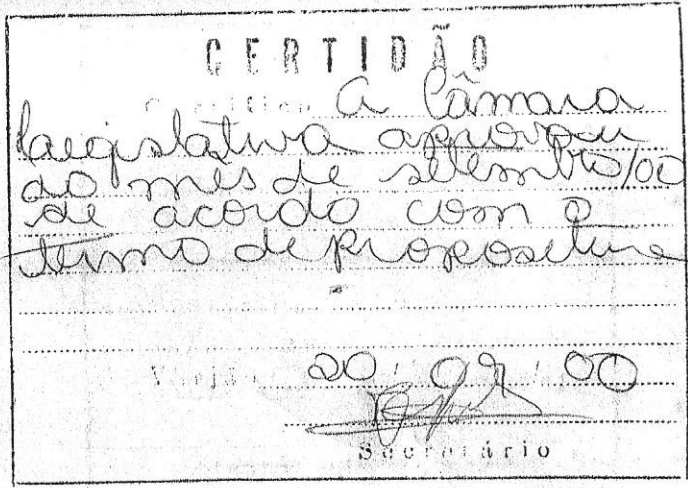 CERTIDÃO
Certifico A Câmara
Legislativa aprovou
do mês de setembro/00
de acordo com o
termo de propositura
20 / 09 / 00
Secretário